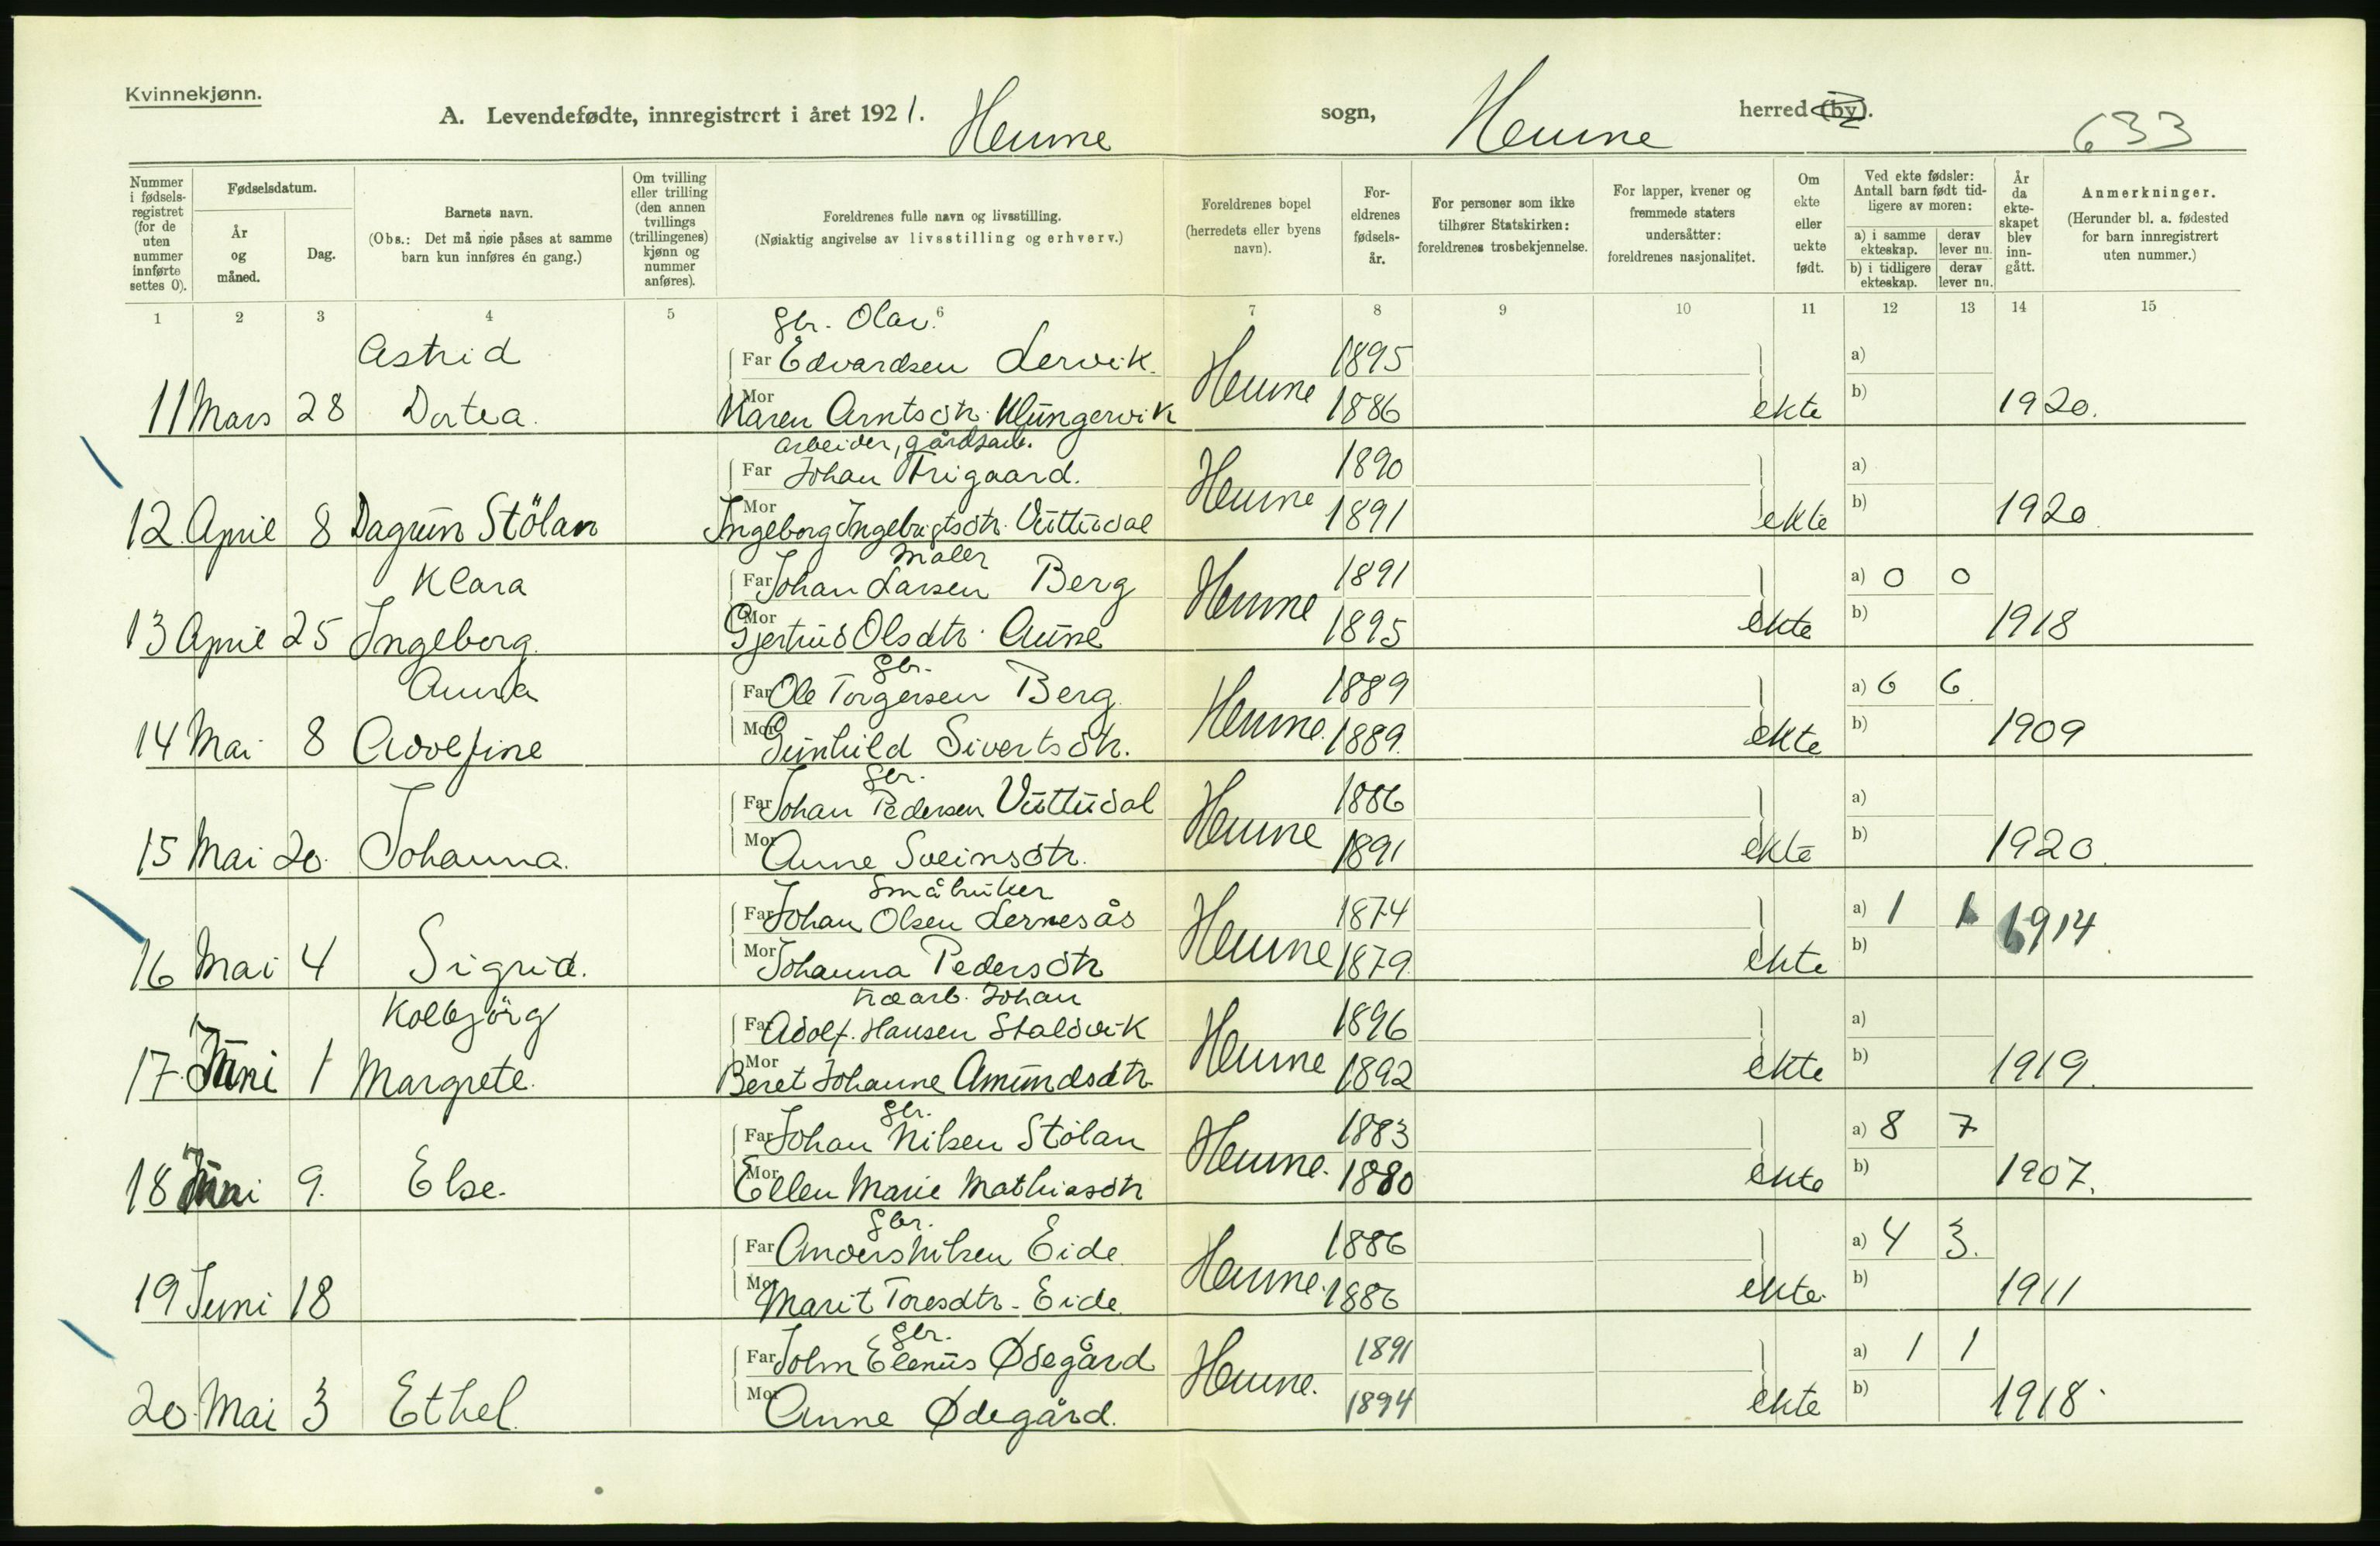 Kvinnekjønn.
A. Levendefødte, innregistrert i året 1921. Hemne sogn, Hemne herred (by). 633
Nummer i fødsels-registret (for de uten nummer innførte settes 0).
Fødselsdatum.
År og måned.
Dag.
Barnets navn.
(Obs.: Det må nøie påses at samme barn kun innføres én gang.)
Om tvilling eller trilling (den annen tvillings (trillingenes) kjønn og nummer anføres).
Foreldrenes fulle navn og livsstilling.
(Nøiaktig angivelse av livsstilling og erhverv.)
Foreldrenes bopel (herredets eller byens navn).
For-eldrenes fødsels-år.
For personer som ikke tilhører Statskirken: foreldrenes trosbekjennelse.
For lapper, kvener og fremmede staters undersåtter: foreldrenes nasjonalitet.
Om ekte eller uekte født.
Ved ekte fødsler: Antall barn født tid-ligere av moren:
a) i samme ekteskap. derav lever nu.
b) i tidligere ekteskap. derav lever nu.
År da ekte-skapet blev inn-gått.
Anmerkninger.
(Herunder bl. a. fødested for barn innregistrert uten nummer.)
1 2 3 4 5 6 7 8 9 10 11 12 13 14 15
gbr. Olav
Astrid Far Edvardsen Lervik. 1895 a)
11 Mars 28 Dortea. Mor Karen Arntsdtr. Klüngervik Hemne 1886 ekte b) 1920.
arbeider, gårdsarb.
Far Johan Trigaard. 1890 a)
12 April 8 Dagrün Stölan Mor Ingeborg Ingebrigtsdtr. Vüttüdal Hemne 1891 ekte b) 1920
maler
Klara Far Johan Larsen Berg 1891 a) 0 0
13 April 25 Ingeborg. Mor Gjertrud Olsdtr. Aune Hemne 1895 ekte b) 1918
gbr.
Anna Far Ole Torgersen Berg. 1889 a) 6 6.
14 Mai 8 Adolfine Mor Günhild Sivertsdtr. Hemne. 1889. ekte b) 1909
gbr.
Far Johan Pedersen Vüttüdal 1886 a)
15 Mai 20. Johanna. Mor Anne Sveinsdtr. Hemne 1891 ekte b) 1920.
Småbruker
Far Johan Olsen Lernesås 1874 a) 1 1 1914
16 Mai 4 Sigrid. Mor Johanna Pedersdtr Hemne 1879. ekte b)
træarb. Johan
Kolbjörg Far Adolf. Hansen Staldvik 1896 a)
17. Juni 1 Margrete. Mor Beret Johanne Amündsdtr Hemne 1892 ekte b) 1919.
gbr.
Far Johan Nilsen Stölan 1883 a) 8 7
18 Juni 9. Else. Mor Ellen Marie Mathiasdtr Hemne. 1880 ekte b) 1907.
gbr.
Far Anders Nilsen Eide 1886 a) 4 3.
19 Juni 18 Mor Marit Toresdtr. Eide Hemne. 1886 ekte. b) 1911
gbr.
Far John Elenüs Ødegård 1891 a) 1 1
20. Mai 3 Ethel. Mor Anne Ødegård. Hemne. 1894 ekte b) 1918.